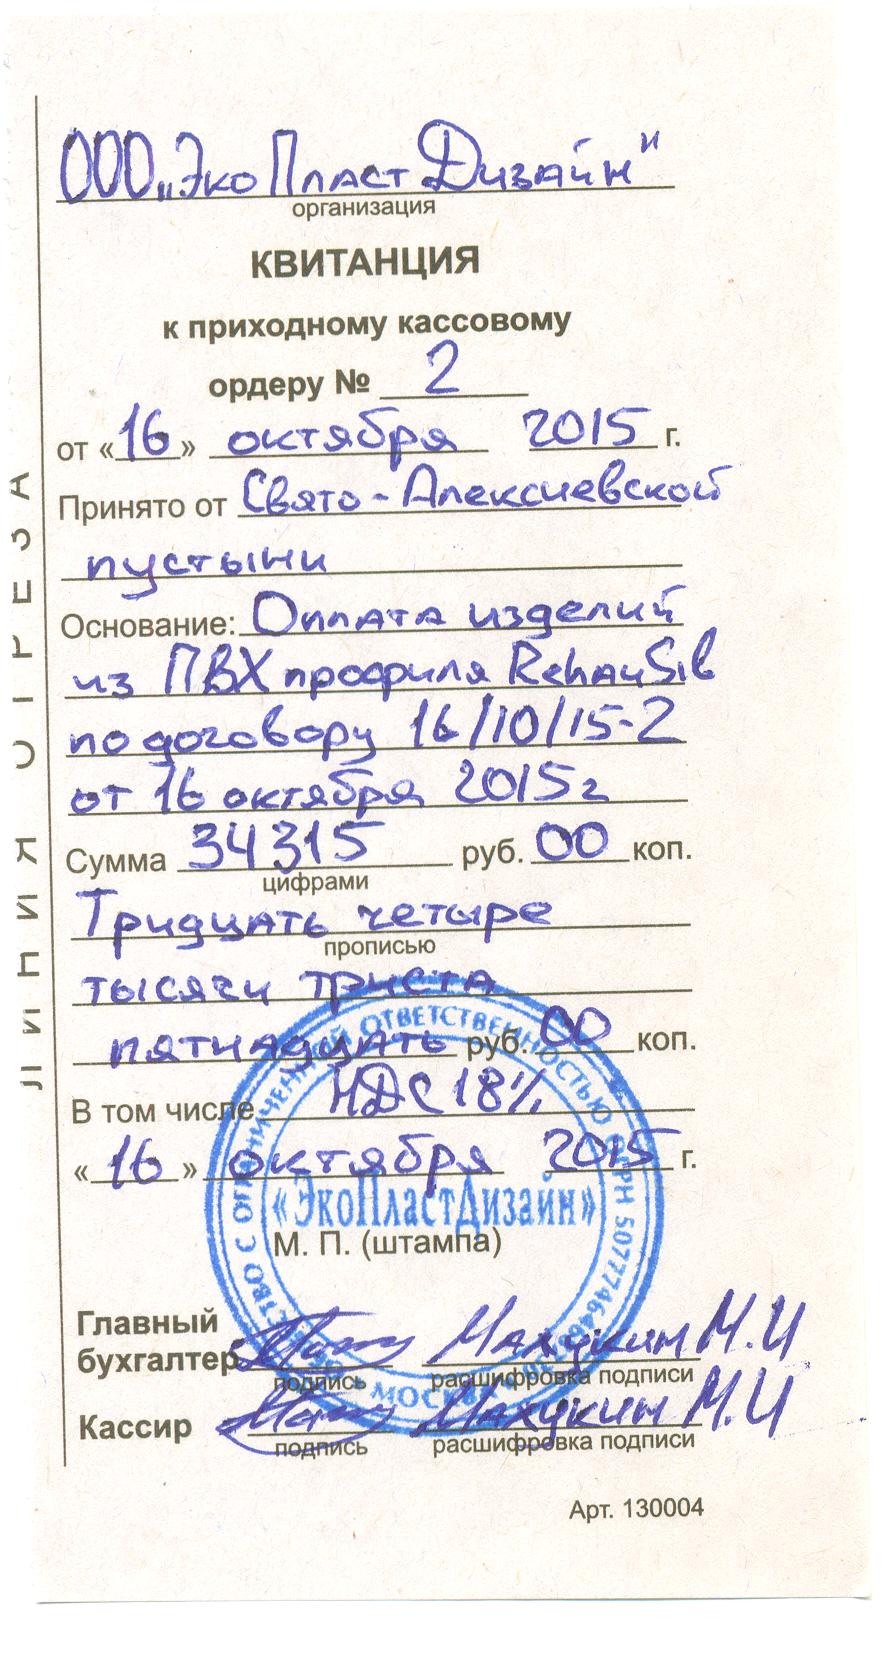 ООО „ЭкоПластДизайн"
организация
КВИТАНЦИЯ
к приходному кассовому
ордеру № 2
от «16» октября 2015 г.
Принято от Свято-Алексиевской
пустыни
Основание: Оплата изделий
из ПВХ профиля RehauSib
по договору 16/10/15-2
от 16 октября 2015 г
Сумма 34315 руб. 00 коп.
цифрами
Тридцать четыре
прописью
тысячи триста
пятнадцать руб. 00 коп.
В том числе НДС 18%
«16» октября 2015 г.
«ЭкоПластДизайн»
М. П. (штампа)
Главный
бухгалтер Махукин М.И
подпись расшифровка подписи
Кассир Махукин М.И
подпись расшифровка подписи
Арт. 130004
ЛИНИЯ ОТРЕЗА
ОБЩЕСТВО С ОГРАНИЧЕННОЙ ОТВЕТСТВЕННОСТЬЮ
МОСКВА